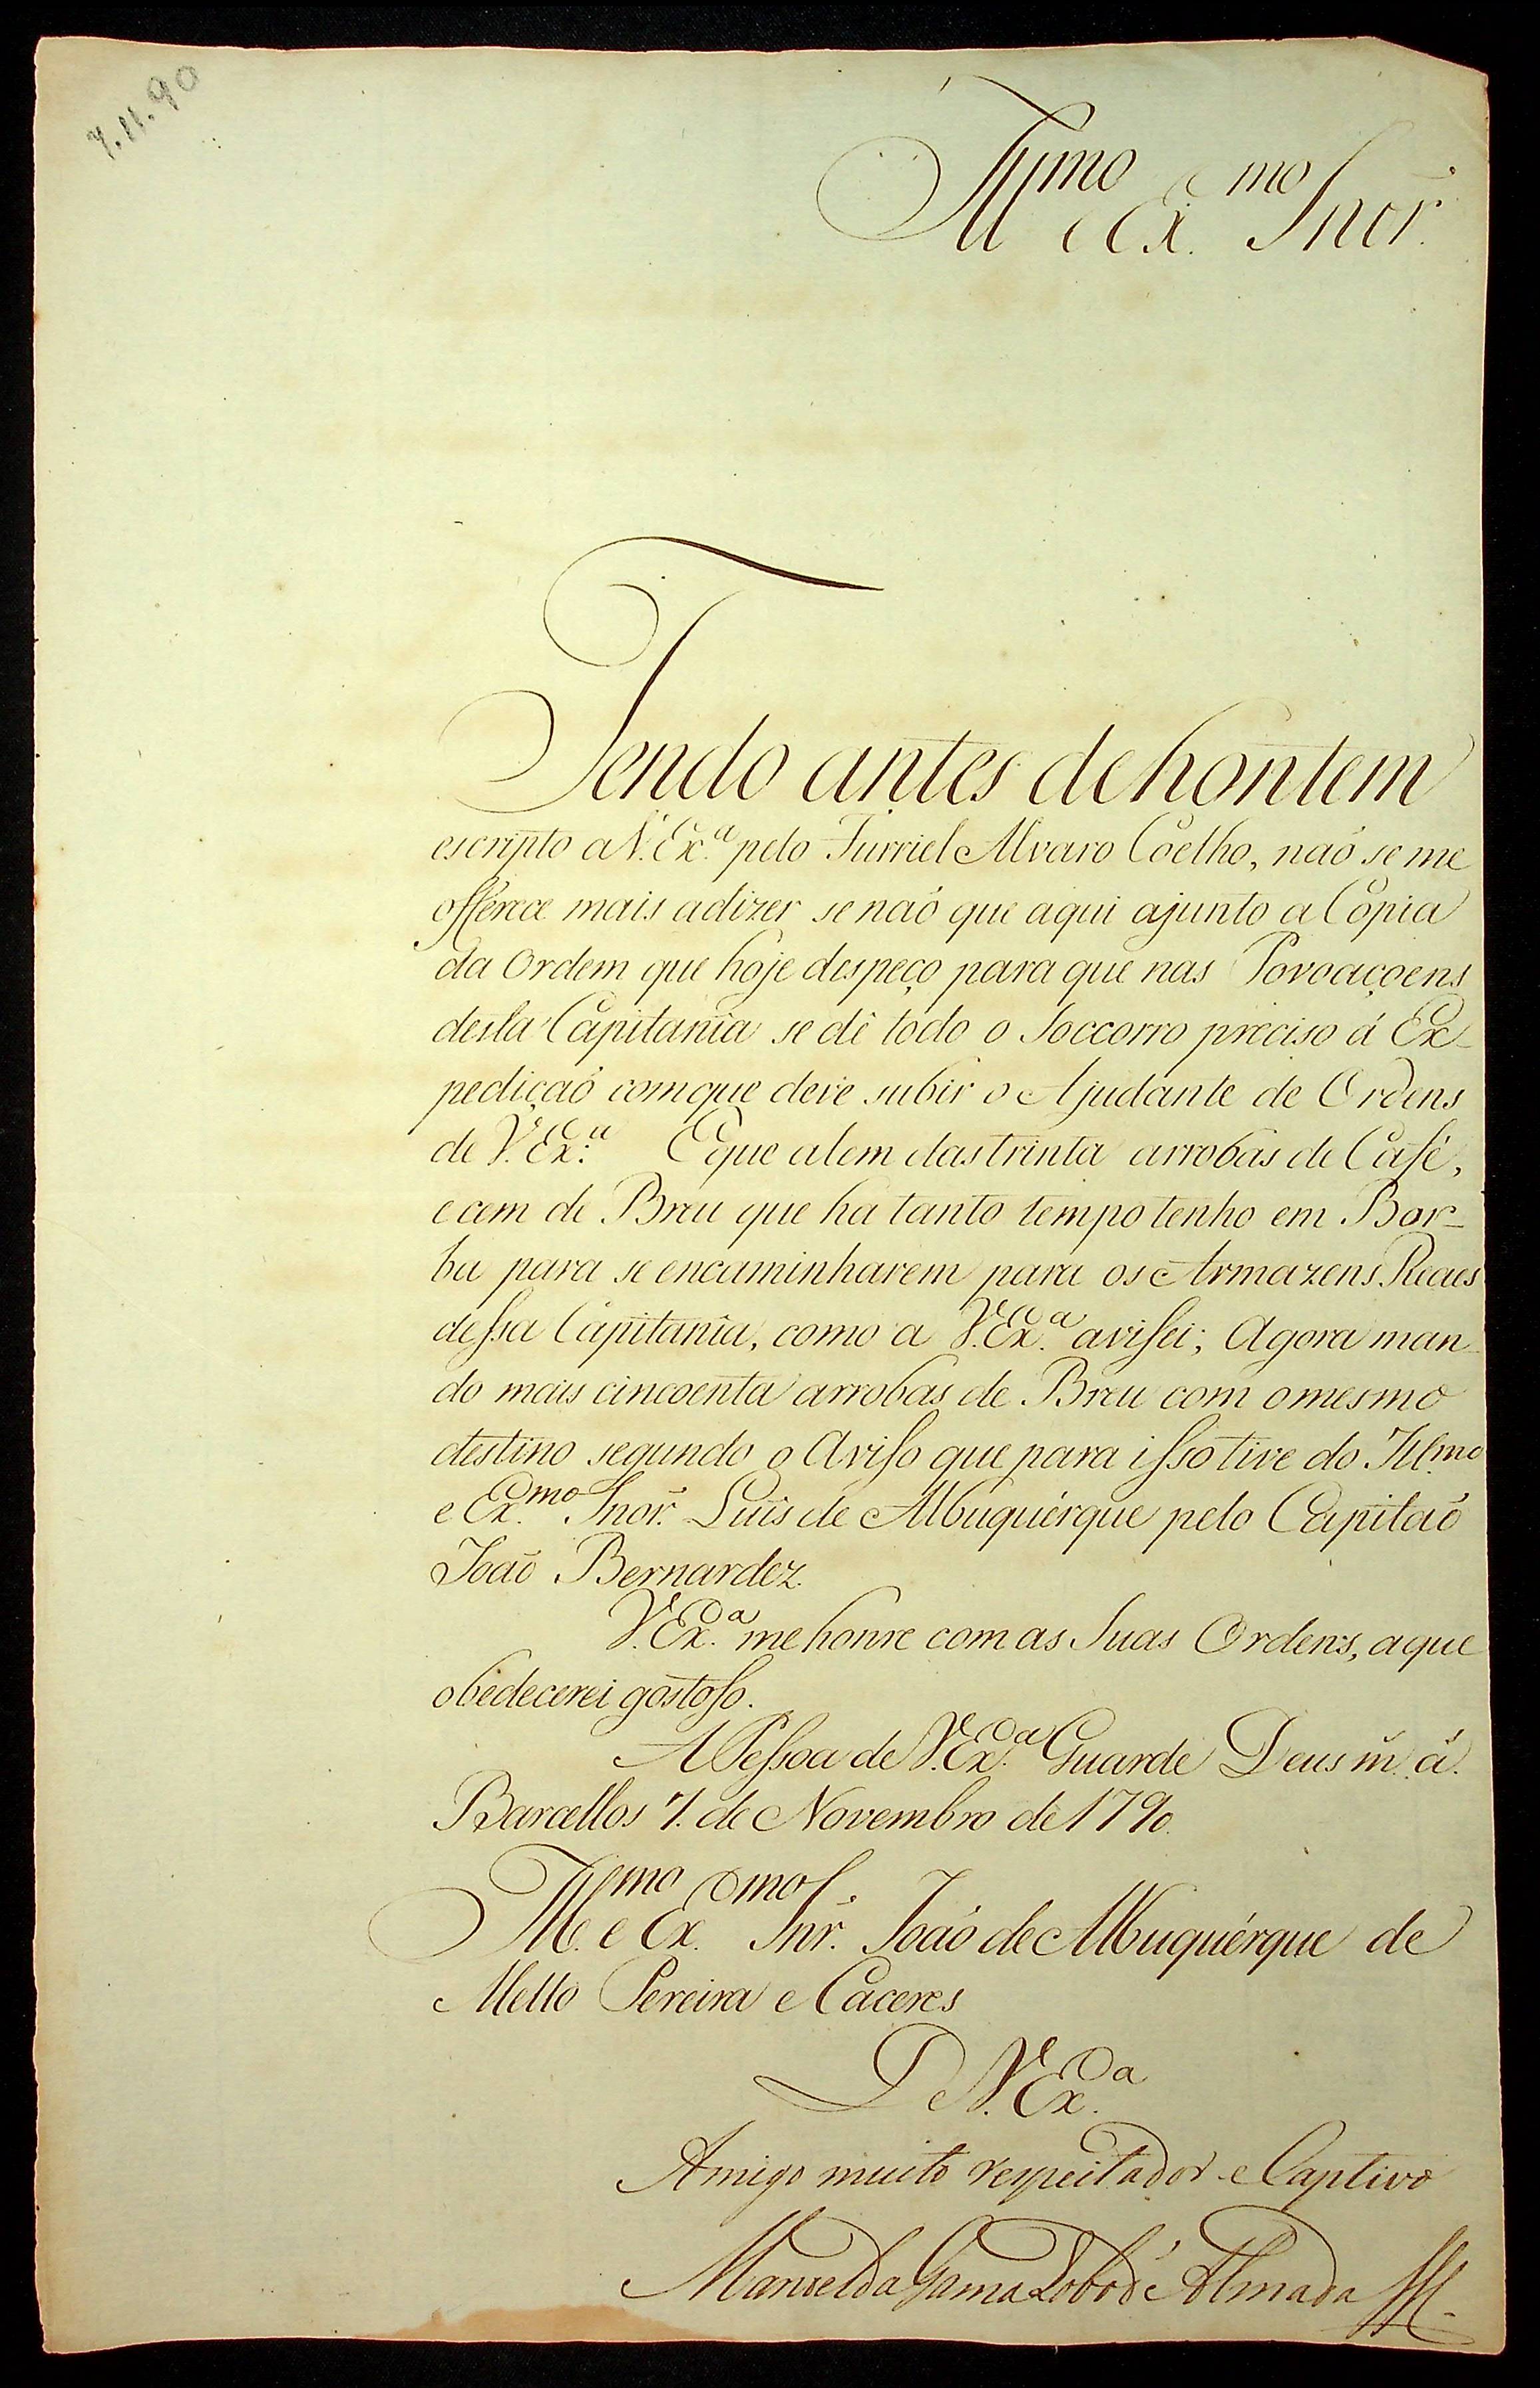 7.11.90
Ill.mo e Ex.mo Snõr.
Tendo antes de hontem
escripto a V. Ex.a pelo Furriel Alvaro Coelho, naõ se me
offerece mais adizer se naõ que aqui ajunto a Cópia
da Ordem que hoje despeço para que nas Povoaçoens
desta Capitanîa se dê todo o Soccorro preciso á Ex-
pediçaõ comque deve subir o Ajudante de Ordens
de V. Ex.a E que alem das trinta arrobas de Café,
e cem de Breu que ha tanto tempo tenho em Bor-
ba para se encaminharem para os Armazens Reaes
dessa Capitanîa, como a V. Ex.a avisei; Agora man-
do mais cincoenta arrobas de Breu com omesmo
destino segundo o Aviso que para isso tive do Ill.mo
e Ex.mo Snõr. Luis de Albuquérque pelo Capitaõ
Joaõ Bernardez.
V. Ex.a me honre com as Suas Ordens, aque
obedecerei gostoso.
A Pessoa de V. Ex.a Guarde Deus m. a.
Barcellos 7. de Novembro de 1790.
Ill.mo e Ex.mo Snr. Joaõ de Albuquérque de
Mello Pereira e Caceres
D V. Ex.a
Amigo muito respeitador e Captivo
Manoel da Gama Lobo de Almada